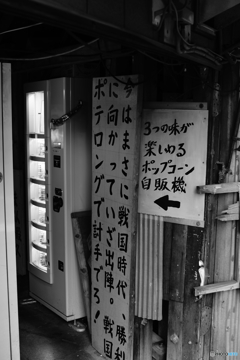 3つの味が
楽しめる
ポップコーン
自販機
今はまさに戦国時代、勝利
に向かっていざ出陣。戦国
ポテロングで討手でろ!